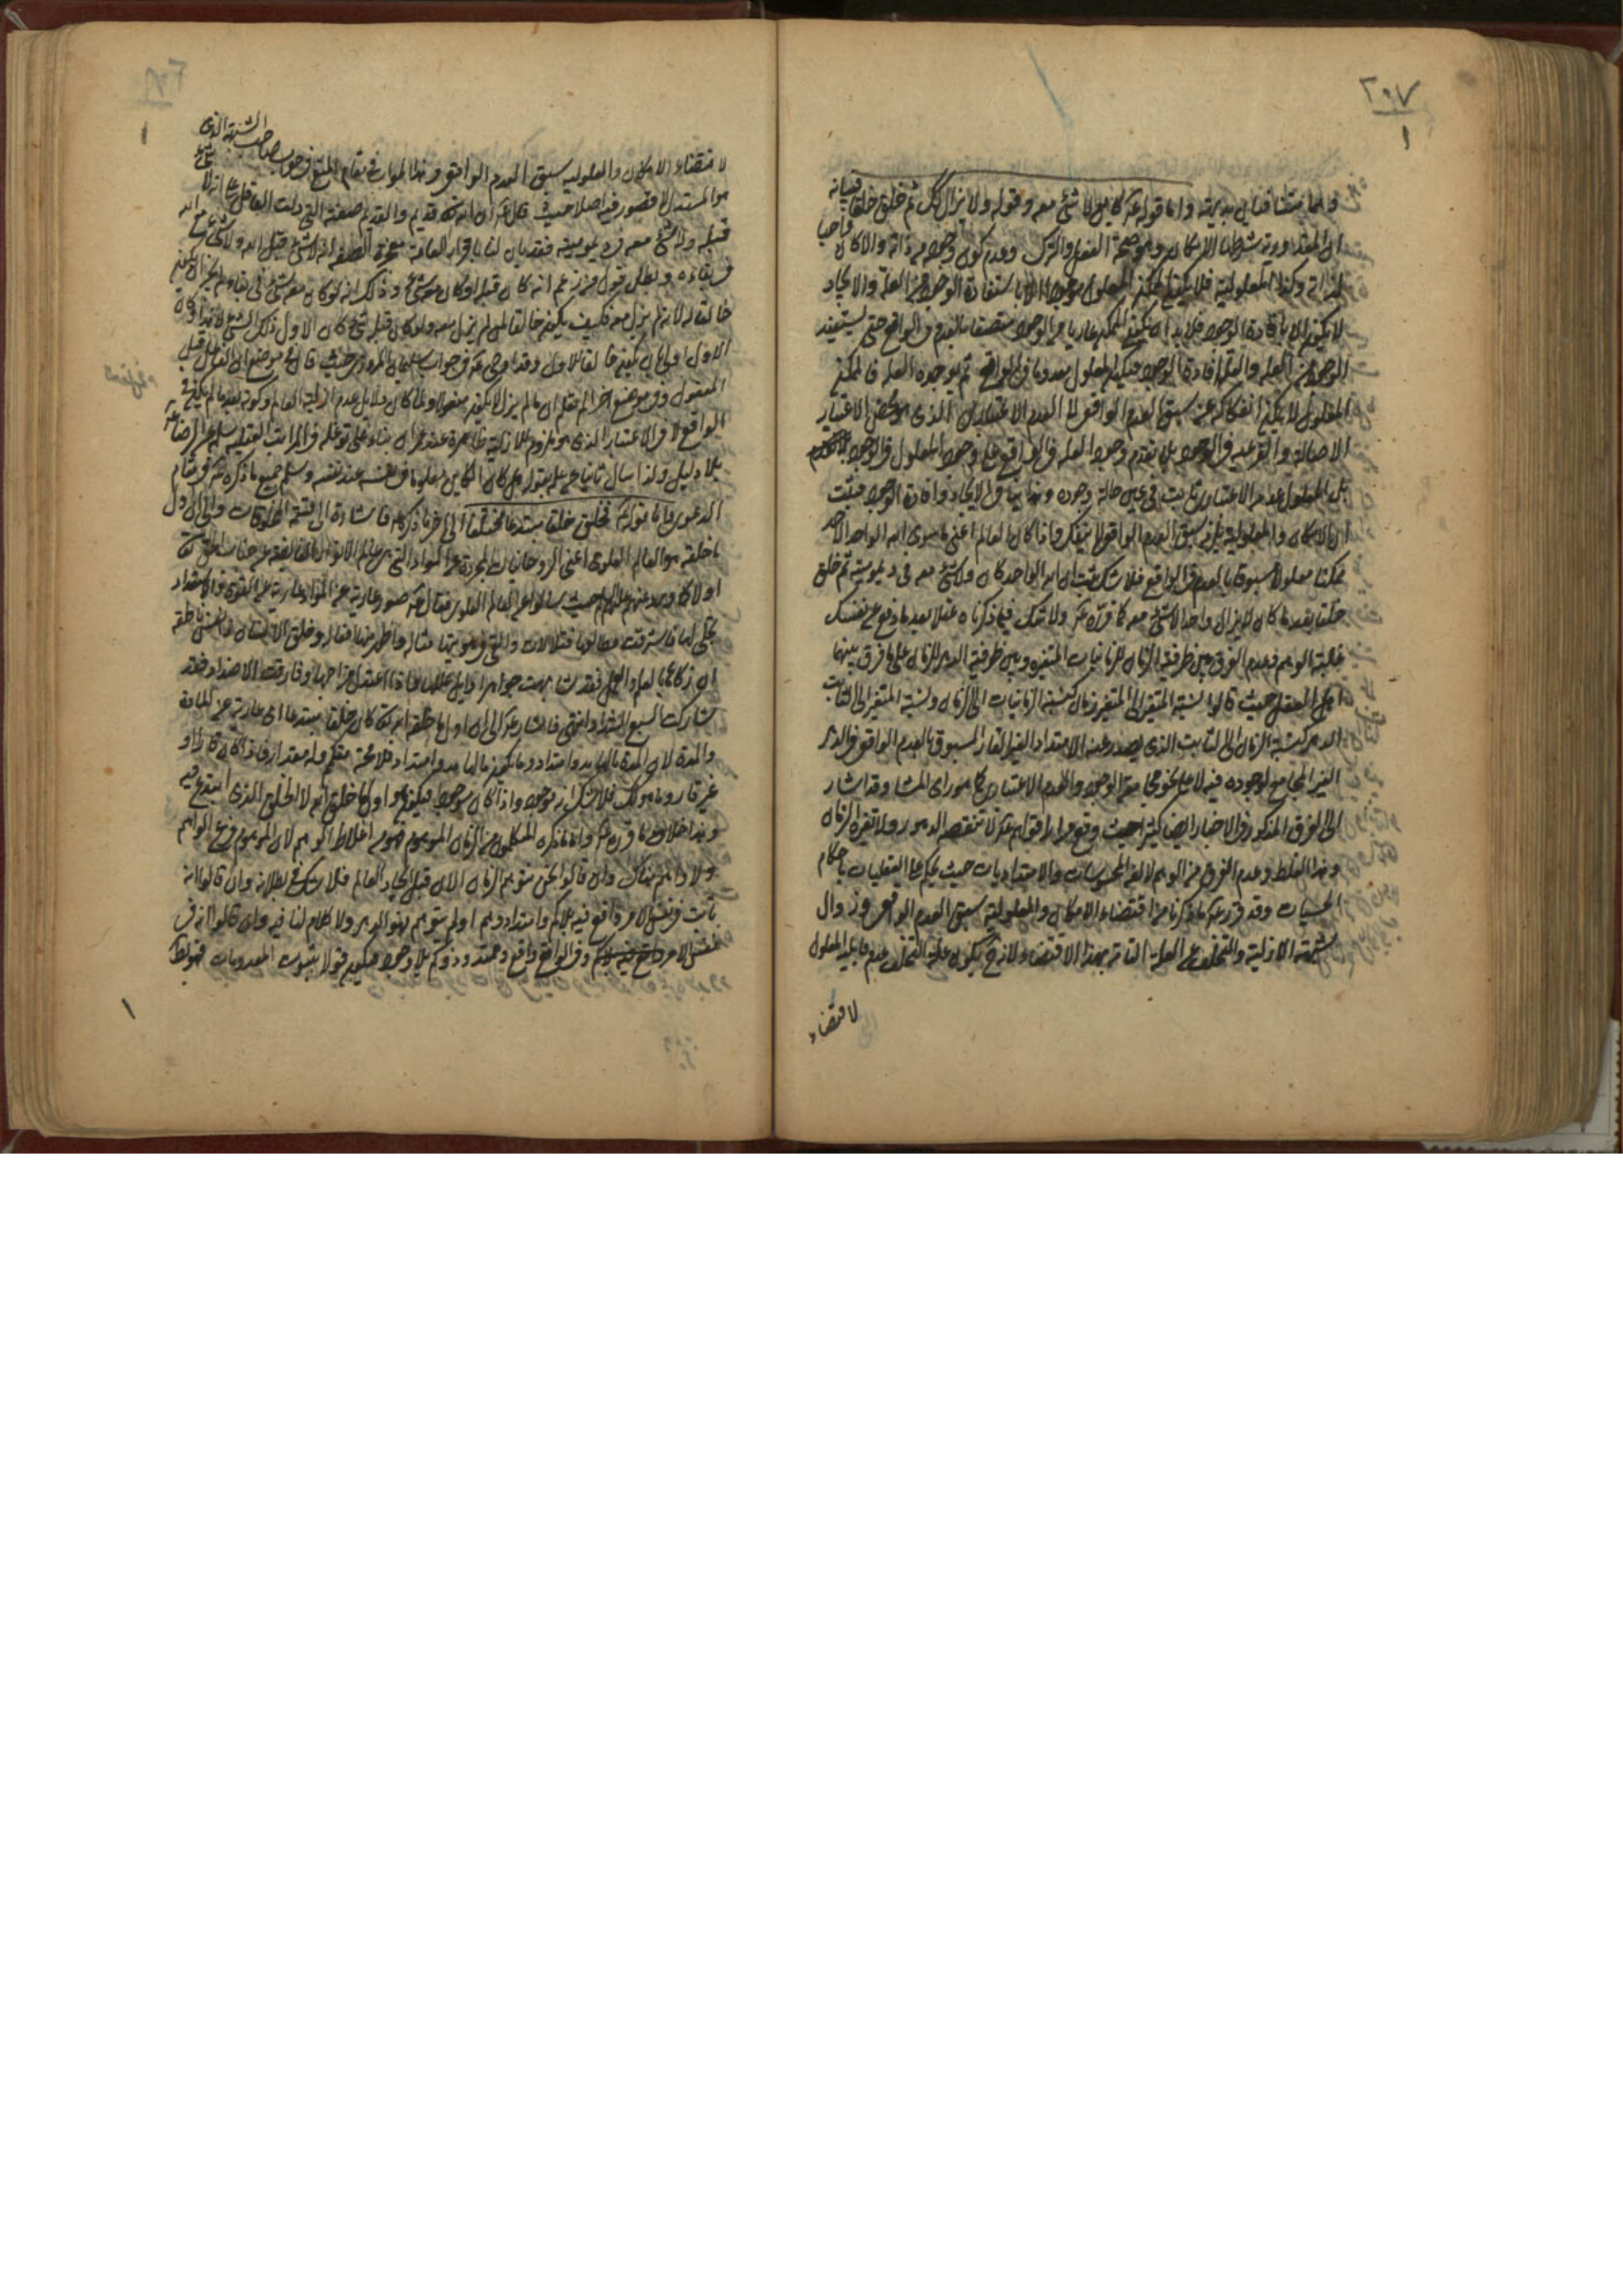 ٢٠٧
١
وانما منشأ فنائى بديهته واما قوله عم كاين لا شئ معه وقوله ولا يزال كك ثم خلق خلقا فبيانه
ان المقدورية شرطها الامكان وهو صحة الفعل والترك وعدم كون وجوده من ذاته والا كان واجبا
لذاته وكذا المعلولية فلا يكون الممكن المعلول موجودا الا باستفادة الوجود من العلة والايجاد
لا يكون الا بافادة الوجود فلا بد ان يكون الممكن عاريا عن الوجود متصفا بالعدم فى الواقع حتى يستفيد
الوجود من العلة والعلة افادة الوجود فيكون المعلول معدوما فى الواقع ثم يوجده العلة فالممكن
المعلول لا يمكن انفكاكه عن سبق العدم الواقعى لا العدم الاعتبارى الذى هو محض الاعتبار
الاصالة والفرعية فى الوجود بل تقدم وجود العلة فى الواقع على وجود المعلول فى الوجود
بل المعلول عدمه الاعتبارى ثابت فى عين حالة وجوده وهذا ينافى الايجاد وافادة الوجود فثبت
ان الامكان والمعلولية يلزمه سبق العدم الواقعى لا ينفك فاذا كان العالم اعنى ما سوى الله الواحد الاحد
ممكنا معلولا مسبوقا بالعدم فى الواقع فلا شك يثبت ان الله الواحد كان ولا شئ معه فى ديمومية ثم خلق
خلقا بعد ما كان لا يزال واحدا لا شئ معه كما قرره عم ولا شك فيما ذكرناه عقلا بعد ما دفع عن نفسك
غلبة الوهم وعدم الفرق بين ظرفية الزمان للزمانيات المتغيره وبين ظرفية الدهر للزمان على ما فرق بينهما
اهل المعقول حيث قالوا نسبة المتغير الى المتغير زمان كنسبة الزمانيات الى الزمان ونسبة المتغير الى الثابت
الدهر كنسبة الزمان الى الثابت الذى يصدر عنه الامتداد الغير القار المسبوق بالعدم الواقعى فى الدهر
الغير المجامع لوجوده فيه لا على نحو مجامعة الوجود والعدم الاعتبارى كما هو راى المشا وقد اشار
الى الفرق المذكور فى الاخبار ايضا كثيرا حيث وقع مرارا قولهم عم لا تنقصه الدهور ولا تغيره الزمان
وهذا الغلط وعدم الفرق من الوهم لالفه المحسوسات والامتداديات حيث يحكم على العقليات باحكام
الحسيات وقد قرر عم ما ذكرنا من اقتضاء الامكان والمعلولية سبق العدم الواقعى وزوال
شبهة الازلية والتخلف عن العلة التامة بهذا الاقتضاء لانه ح يكون علة التخلف عدم قابلية المعلول
لاقتضاء
٢٠٨
١
لاقتضاء الامكان والمعلولية سبق العدم الواقعى وهذا الجواب فى مقام المنع فى جواب صاحب الشبهة الذى
هو المستدل لا قصور فيه اصلا حيث قال عم ان الله تعه قديم والقدم صفته التى دلت العاقل على انه لا شئ
قبله ولا شئ معه فى ديمومية فقد بان لنا باقرار العامة معجزة الصفة انه لا شئ قبل الله ولا شئ مع الله
فى بقاءه وبطل قول من زعم انه كان قبله او كان معه شئ وذلك انه لو كان معه شئ فى بقاءه لم يجز ان يكون
خالقا له لانه لم يزل معه فكيف يكون خالقا لمن لم يزل معه ولو كان قبله شئ كان الاول ذلك الشئ لا هذا وكان
الاول اولى بان يكون خالقا للاول وقد اوضح عم فى جواب سليمان المروزى حيث قال فى موضع ان الفاعل قبل
المفعول وفى موضع اخر الم تعلم ان ما لم يزل لا يكون مفعولا ولما كان دلايل عدم ازلية العالم وكونه بعد ما لم يكن فى
الواقع لا فى الاعتبار الذى هو ملزوم للازلية ظاهرة عند عمران بناء على توغله فى المراتب العقلية سلم عن الرضا عم
بلا دليل ولذا سال ثانيا عن علمه بقوله هل كان الكاين معلوما فى نفسه عند نفسه وسلم جميع ما ذكره عم فى مقام
الدعوى واما قوله عم فخلق خلقا مبتدعا مختلفا الى اخر ما ذكر عم فاشارة الى قسمة المخلوقات والى ان اول
ما خلقه هو العالم العلوى اعنى الروحانيات المجردة عن المواد التى هى عالم الانوار الفايضة عن جناب الحق تعه
اولا كما ورد عنهم عليهم السلم حيث سئلوا عن العالم العلوى فقال عم صور عارية عن المواد عارية عن القوى والاستعداد
تجلى لها فاشرقت وطالعها فتلالات والقى فى هويتها مثاله واظهر منها افعاله وخلق الانسان ذا نفس ناطقة
ان زكاها بالعلم والعمل فقد شابهت جواهر اوايل عللها فاذا اعتدل مزاجها وفارقت الاضداد فقد
شاركت السبع الشداد انتهى فاشار عم الى ان اول ما خلقه الله تعه كان خلقا مبتدعا اى عارية عن المادة
والمدة لان المدة بالها بدو امتداد وما يكون بالها بدو امتداد فلا محة متكمم وله مقدار فاذا كان قارا او
غير قار وما هو كك فلا شك انه موجود واذا كان موجودا فيكون هو اول ما خلق الله لا الخلق الذى ابتدع فيه
وهذا خلاف ما قرره عم واما ما ذكره المتكلمون من الزمان الموهوم فهو من اغلاط الوهم لان الموهوم فرع الواهم
ولا واهم هناك وان قالوا نحن نتوهم الزمان الان قبل ايجاد العالم فلا شك فى بطلانه وان قالوا انه
ثابت فى نفس الامر واقع فيه بلا كم وامتداد وهم او لم يتوهم فهو الدهر ولا كلام لنا فيه وان قالوا انه فى
نفس الامر وفى الواقع واقع وممتد وذو كم بلا وجود فيكون قولا بثبوت المعدومات فهو باطل
١